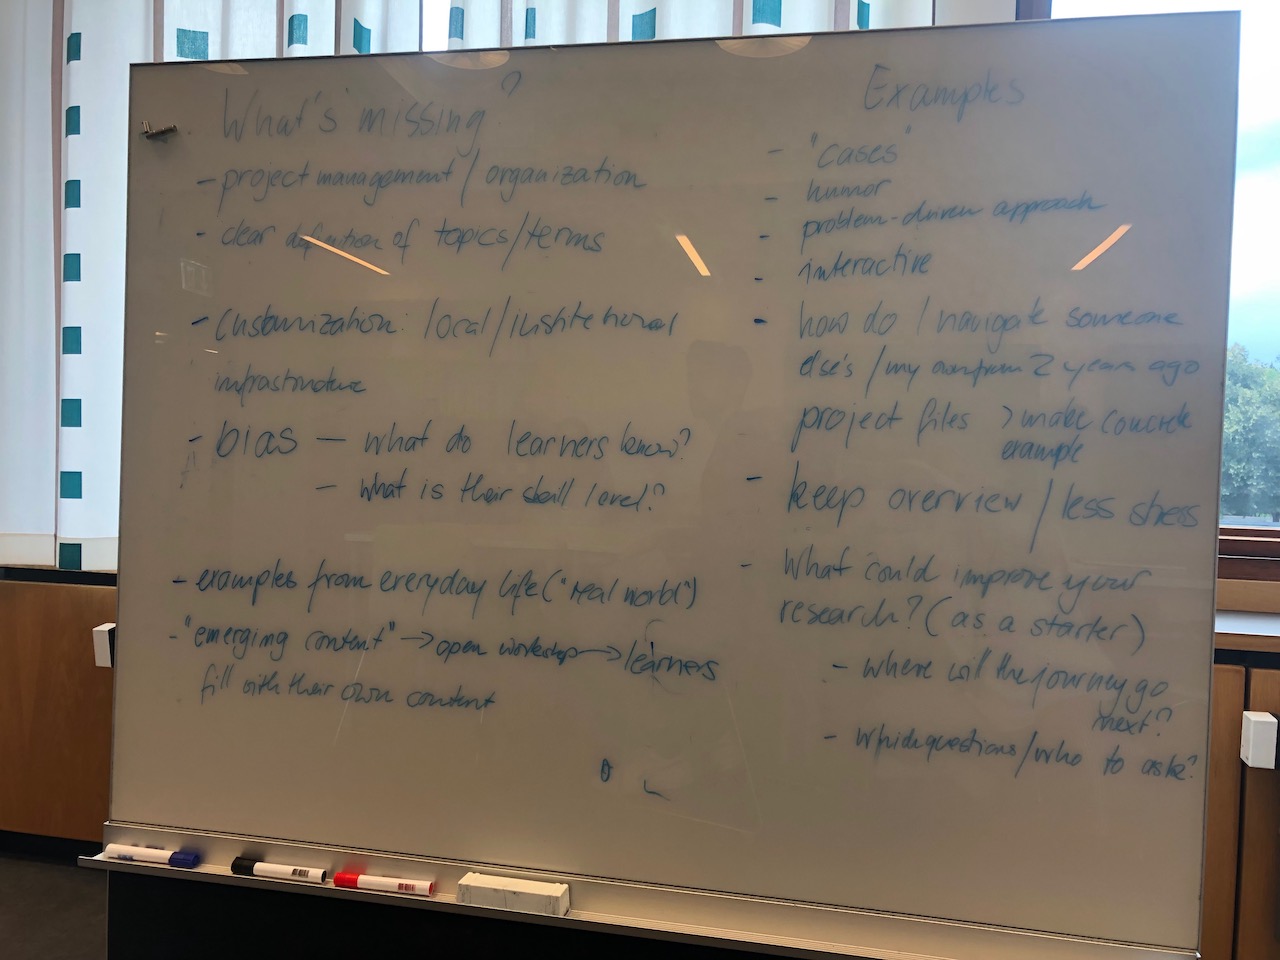 What's missing?
- project management / organization
- clear definition of topics/terms
- Customization: local/institutional
infrastructure
- bias — what do learners know?
- what is their skill level?
- examples from everyday life ("real world")
- "emerging content" → open workshop → learners
fill with their own content
Examples
- "cases"
- humor
- problem-driven approach
- interactive
- how do I navigate someone
else's / my own from 2 years ago
project files > make concrete
example
- keep overview / less stress
- What could improve your
research? (as a starter)
- where will the journey go
next?
- which questions/who to ask?